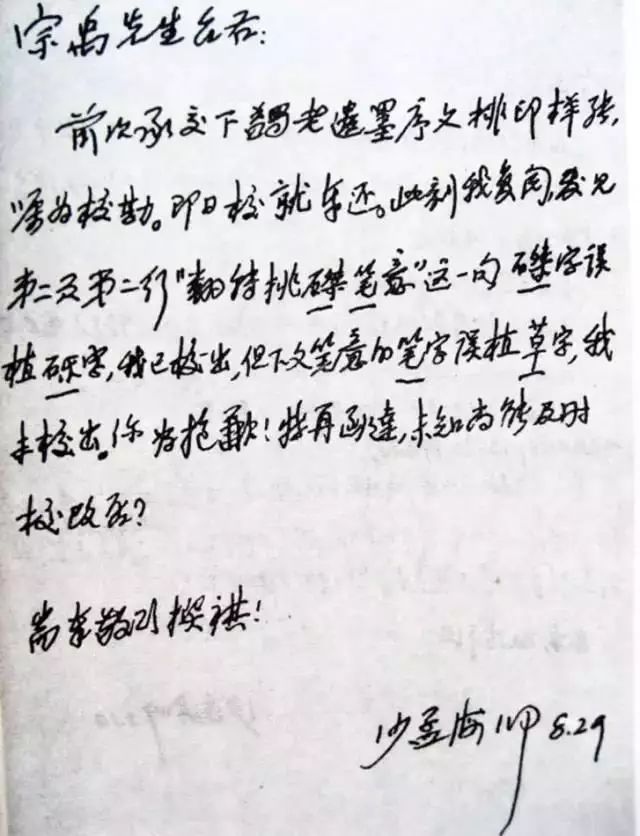 宗禹先生台右:
前次承交下蠲老遗墨序文排印样张,
嘱为校勘。即日校就奉还。此刻我复阅,发见
第二页第二行“翻转挑磔笔意”这一句 磔字误
植砾字,我已校出,但下文笔意的笔字误植草字,我
未校出。你为抱歉!特再函达,未知尚能及时
校改否?
耑奉敬颂撰祺!
沙孟海 8.29